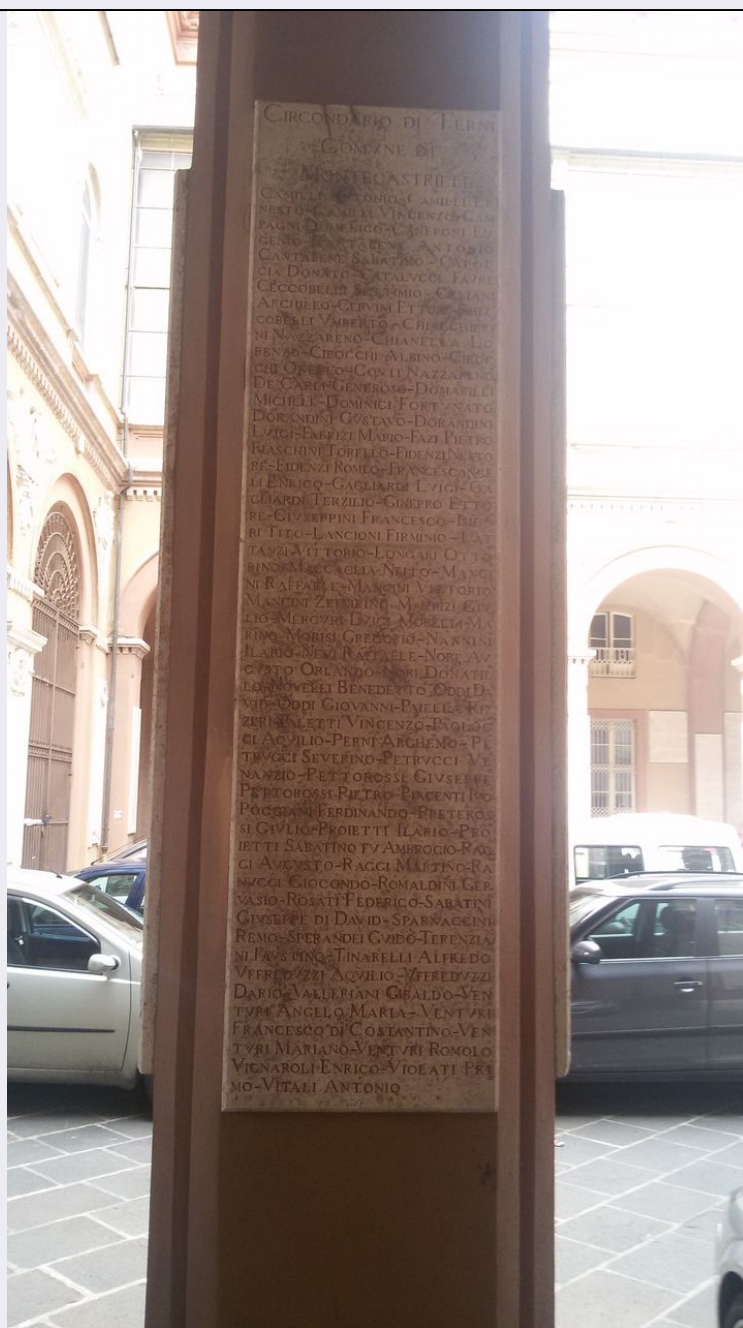 CIRCONDARIO DI TERNI
COMVNE DI
MONTECASTRILLI
CAMILLI ANTONIO-CAMILLI ER
NESTO-CAMILLI VINCENZO-CAM
PAGNI DOMENICO-CANEPONI EV
GENIO-CANTABENE ANTONIO
CANTABENE SABATINO-
CIA DONATO-CATALUCCI
CECCOBELLI SETTIMIO-
ARCHILEO-CERVINI ETTORE-
COBELLI VMBERTO-CHIACCHIERI
NI NAZZARENO-CHIANELLA LO
RENZO-CIBOCCHI ALBINO-CIBOC
CHI OTELLO-CONTI NAZZARENO
DE CARLI GENEROSO-DOMABILLI
MICHELE-DOMINICI FORTVNATO
DORANDINI GVSTAVO-DORANDINI
LVIGI-FABRIZI MARIO-FAZI PIETRO
FIASCHINI TORELLO-FIDENZI NESTO
RE-FIDENZI ROMEO-FRANCESCANGE
LI ENRICO-GAGLIARDI LVIGI-GA
GLIARDI TERZILIO-GINEPRO ETTO
RE-GIVSEPPINI FRANCESCO-
RI TITO-LANCIONI FIRMINIO-LAT
TANZI VITTORIO-LONGARI OTTO
RINO-MACCAGLIA NELLO-MANCI
NI RAFFAELE-MANCINI VITTORIO
MANCINI ZEFFIRINO-MAVRIZI GIV
LIO-MERCVRI LVIGI-MORELLI MA
RINO-MORISI GREGORIO-NANNINI
ILARIO-NEVI RAFFAELE-NORI AV
GVSTO ORLANDO-NORI DONATIL
LO-NOVELLI BENEDETTO-ODDI DA
VID-ODDI GIOVANNI-PAIELLA RIZ
ZERI-PALETTI VINCENZO-PAGLIOC
CI AQVILIO-PERNI ARCHEMO-PE
TRVCCI SEVERINO-PETRVCCI VE
NANZIO-PETTOROSSI GIVSEPPE
PETTOROSSI PIETRO-PIACENTI IVO
POGGIANI FERDINANDO-PRETEROS
SI GIVLIO-PROIETTI ILARIO-PRO
IETTI SABATINO FV AMBROGIO-RAG
GI AVGVSTO-RAGGI MARTINO-RA
NVCCI GIOCONDO-ROMALDINI GER
VASIO-ROSATI FEDERICO-SABATINI
GIVSEPPE DI DAVID-SPARNACCINI
REMO-SPERANDEI GVIDO-TERENZIA
NI FAVSTINO-TINARELLI ALFREDO
VFFREDVZZI AQVILIO-VFFREDVZZI
DARIO-VALLERIANI GIRALDO-VEN
TVRI ANGELO MARIA-VENTVRI
FRANCESCO DI COSTANTINO-VEN
TVRI MARIANO-VENTVRI ROMOLO
VIGNAROLI ENRICO-VIOLATI PRI
MO-VITALI ANTONIO